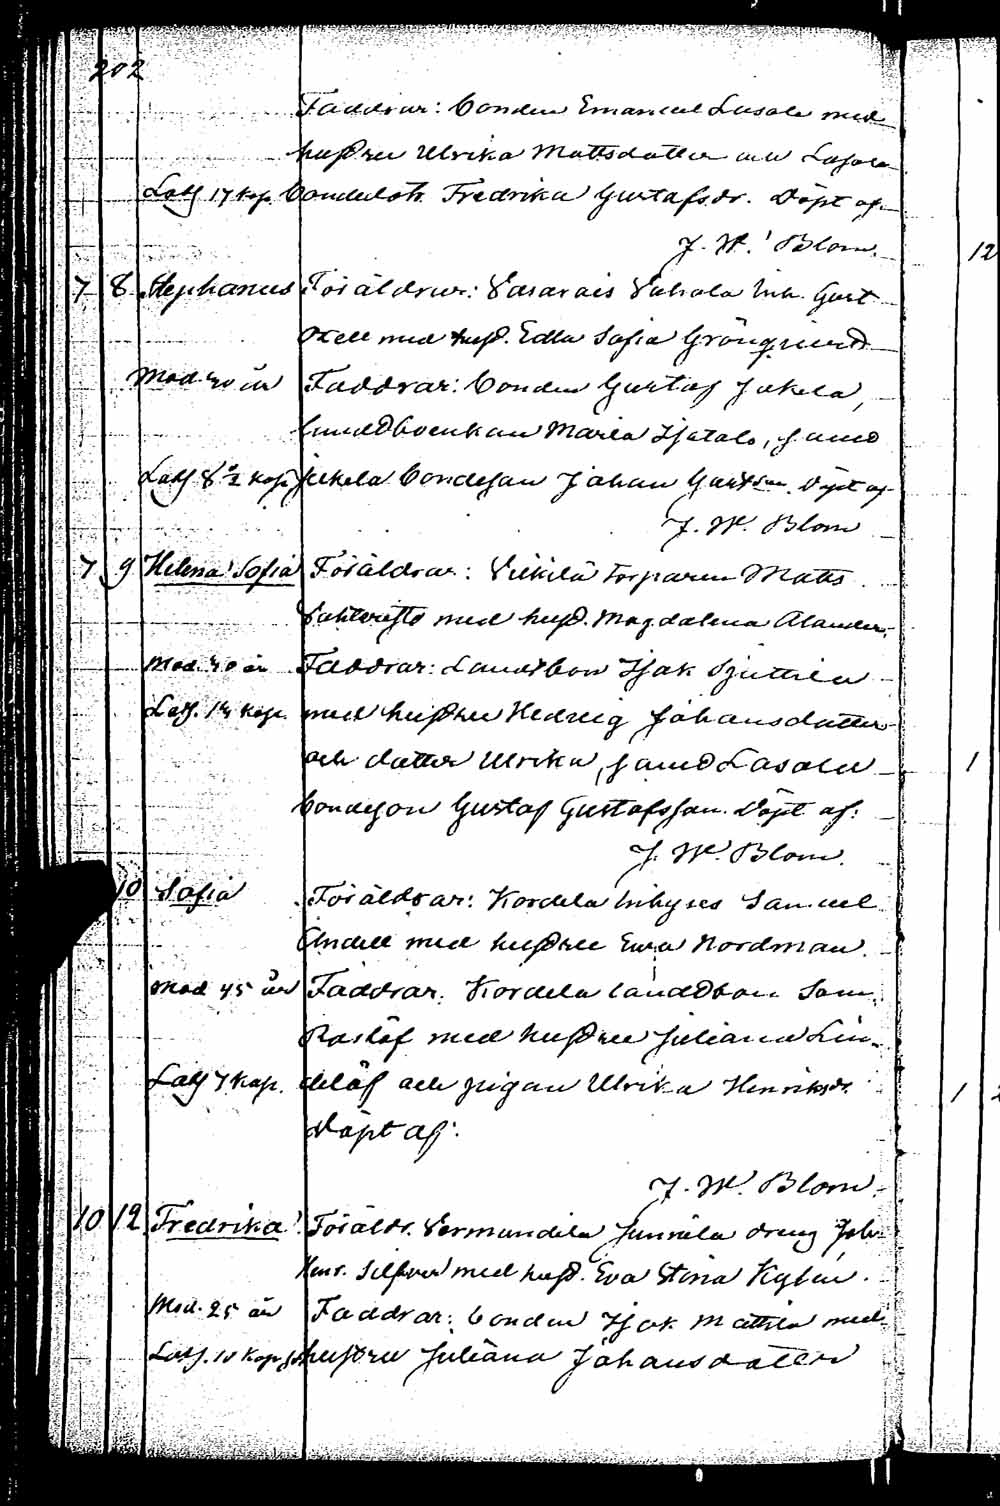 202
Faddrar: Bonden Emanuel Lasala med
hustru Ulrika Mattsdotter och Lasala
Lösg 17 kop. Bondedotr. Fredrika Gustafsdr. Döpt af
J. W. Blom.
7 8 Stephanus Föräldrar: Vasarais Vahala Inh. Gust
Oxell med hust. Edla Sofia Grönqvist
Mod. 40 år Faddrar: Bonden Gustaf Jakela,
Landtboenkan Maria Isotalo, samt
Lösg 8½ kop Jakela Bondeson Johan Gustson. Döpt af
J. W. Blom
7 9 Helena Sofia Föräldrar: Vickilä torparen Matts
med hust. Magdalena Alander.
Mod. 40 år Faddrar: Landtbon Isak Sjuttila
Lösg. 14 kop. med hustru Hedvig Johansdotter
och dotter Ulrika, samt Lasala
Bondeson Gustaf Gustafsson. Döpt af:
J. W. Blom.
10 Sofia Föräldrar: Kordela Inhyses Samuel
Andell med hustru Eva Nordman.
Mod 45 år Faddrar: Kordela landtbon Sam.
Raslöf med hustru Juliana Lin-
Lösg 7 kop. delöf och pigan Ulrika Henriksdr.
Döpt af:
J. W. Blom.
10 12 Fredrika Föräldr. Vermundila Junnila dreng Joh.
Henr. Silfver med hust. Eva Stina Kylen.
Mod. 25 år Faddrar: Bonden Isak Mattila med
Lösg. 10 kop hustru Juliana Johansdotter
12
1
1